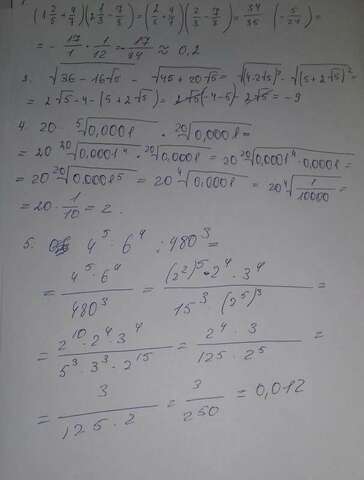 (1 2/5 + 4/7)(2 1/3 - 7/8) = (2/5 + 4/7)(2/3 - 7/8) = 34/35 · (-5/24) =
= - 17/7 · 1/12 = - 17/84 ≈ 0,2
3. √(36 - 16√5) - √(45 + 20√5) = √(4-2√5)² - √(5+2√5)² =
= 2√5 - 4 - (5 + 2√5) = 2√5 - 4 - 5 - 2√5 = -9
4. 20 · ⁵√0,0001 · ²⁰√0,0001 =
= 20 ²⁰√0,0001⁴ · ²⁰√0,0001 = 20 ²⁰√0,0001⁴ · 0,0001 =
= 20 ²⁰√0,0001⁵ = 20 ⁴√0,0001 = 20 ⁴√(1/10000) =
= 20 · 1/10 = 2.
5. 4⁵ · 6⁴ : 480³ =
= (4⁵ · 6⁴)/480³ = ((2²)⁵ · 2⁴ · 3⁴)/(15³ · (2⁵)³) =
= (2¹⁰ · 2⁴ · 3⁴)/(5³ · 3³ · 2¹⁵) = (2⁴ · 3)/(125 · 2⁵) =
= 3/(125 · 2) = 3/250 = 0,012